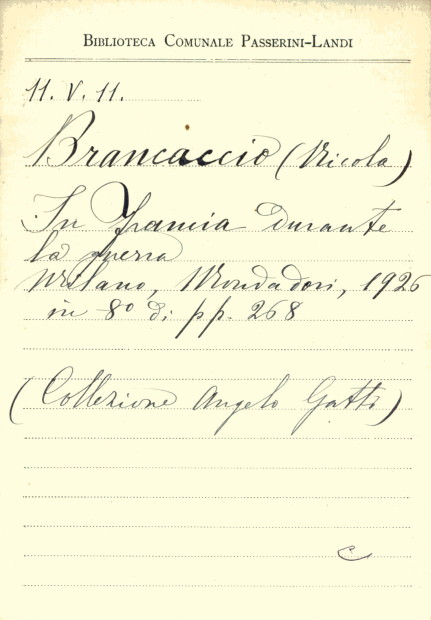 BIBLIOTECA COMUNALE PASSERINI-LANDI
11. V. 11.
Brancaccio (Nicola)
In Francia durante
la guerra
Milano, Mondadori, 1926
in 8º di pp. 268
(Collezione Angelo Gatti)
C